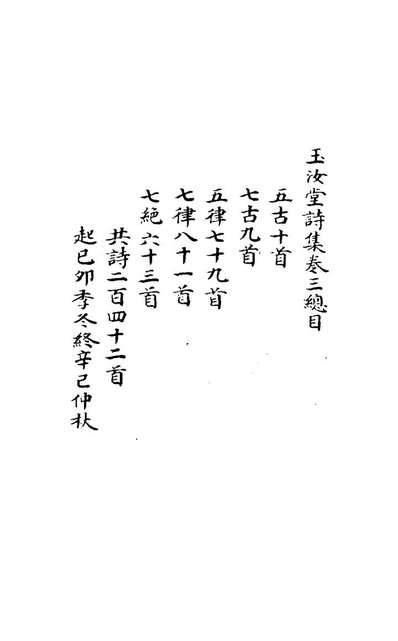 玉汝堂詩集卷三總目
五古十首
七古九首
五律七十九首
七律八十一首
七絕六十三首
共詩二百四十二首
起己卯季冬終辛巳仲秋